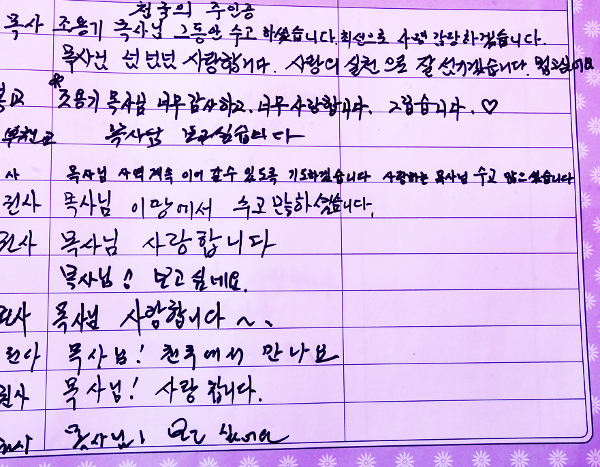 천국의 주인공
목사 조용기 목사님 그동안 수고 하셨습니다. 최선으로 사명 감당하겠습니다.
목사님 넌넌넌 사랑합니다. 사랑의 실천으로 잘 섬기겠습니다. 보고싶어요
조용기 목사님 너무 감사하고, 너무 사랑합니다. 그립습니다. ♡
목사님 보고싶습니다
사 목사님 사역 계속 이어 갈수 있도록 기도하겠습니다 사랑하는 목사님 수고 많으셨습니다
권사 목사님 이땅에서 수고 많이하셨습니다.
권사 목사님 사랑합니다
목사님! 보고 싶네요.
권사 목사님 사랑합니다 ~.
목사님! 천국에서 만나요
권사 목사님! 사랑합니다.
목사님! 보고 싶네요